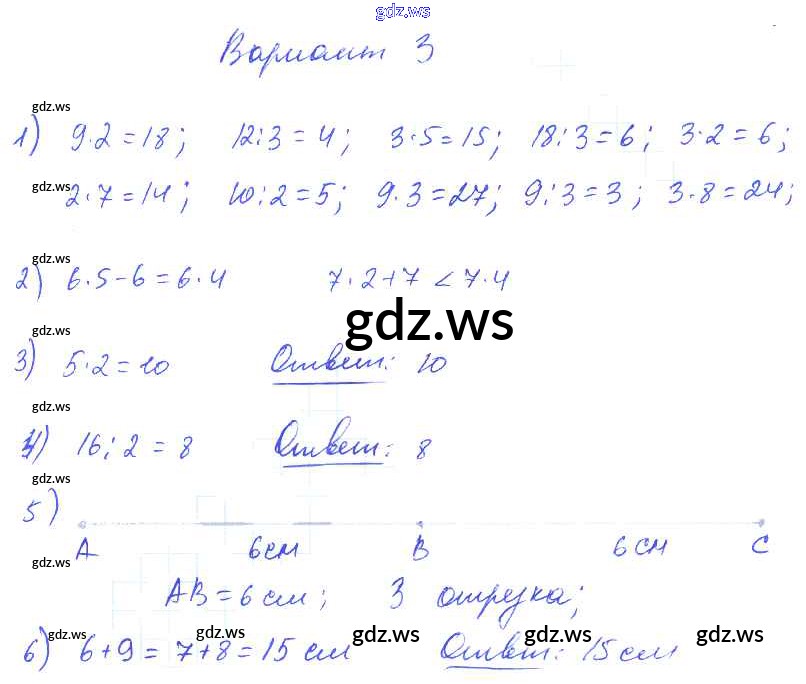 gdz.ws
Вариант 3
gdz.ws
1) 9·2=18; 12:3=4; 3·5=15; 18:3=6; 3·2=6;
gdz.ws
2·7=14; 10:2=5; 9·3=27; 9:3=3; 3·8=24;
gdz.ws
2) 6·5-6=6·4 7·2+7<7·4
gdz.ws
gdz.ws
3) 5·2=10 Ответ: 10
gdz.ws
4) 16:2=8 Ответ: 8
gdz.ws
5)
A 6см B 6см C
gdz.ws
AB=6см; 3 отрезка;
gdz.ws gdz.ws gdz.ws gdz.ws
6) 6+9=7+8=15 см Ответ: 15см